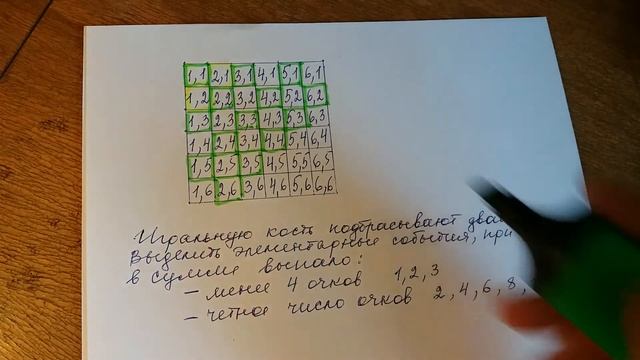 1,1 2,1 3,1 4,1 5,1 6,1
1,2 2,2 3,2 4,2 5,2 6,2
1,3 2,3 3,3 4,3 5,3 6,3
1,4 2,4 3,4 4,4 5,4 6,4
1,5 2,5 3,5 4,5 5,5 6,5
1,6 2,6 3,6 4,6 5,6 6,6
Игральную кость подбрасывают два
Выделить элементарные события, при
в сумме выпало:
- менее 4 очков 1, 2, 3
- четное число очков 2, 4, 6, 8,